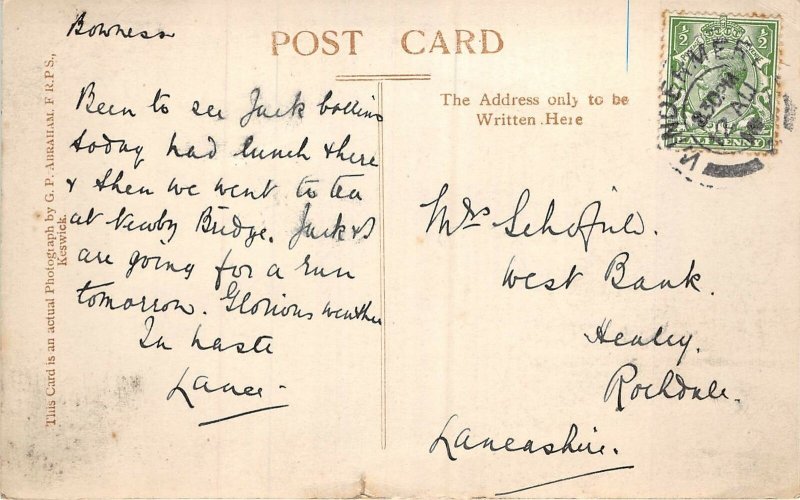 Bowness
POST CARD
Been to see Jack Collins
today had lunch there
& then we went to tea
at Newby Bridge. Jack & I
are going for a run
tomorrow. Glorious weather
In haste
Lance.
The Address only to be
Written Here
Mrs Schofield.
West Bank.
Healey.
Rochdale.
Lancashire.
This Card is an actual Photograph by G. P. ABRAHAM, F R.P S.,
Keswick.
½ ½
WINDERMERE
8.30 PM
12 AU